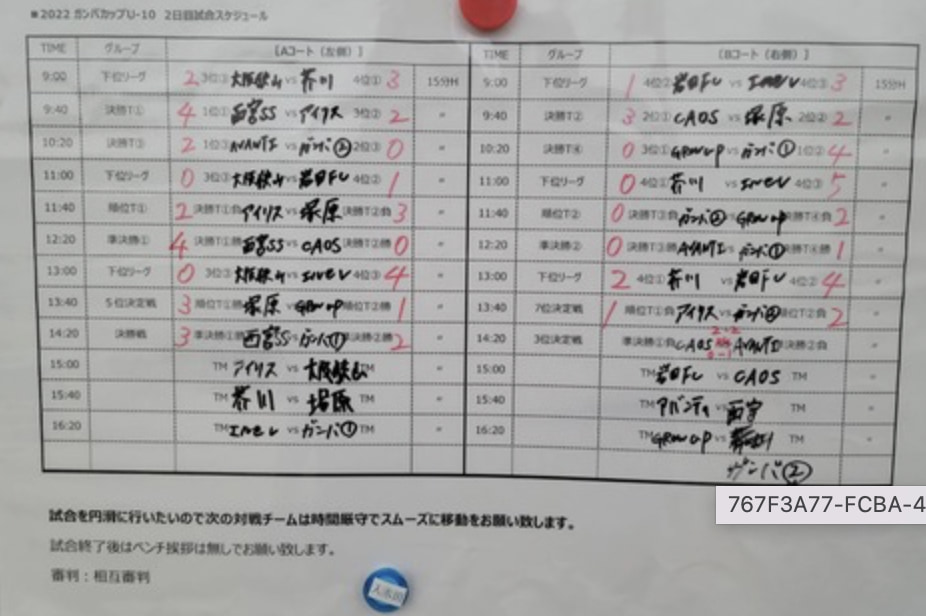 ■2022 ガンバカップU-10 2日目試合スケジュール
TIME グループ 【Aコート（左側）】 TIME グループ 【Bコート（右側）】
9:00 下位リーグ 2 3位③ vs 芥川 4位① 3 15分H 9:00 下位リーグ 1 4位② 岩田FC vs 4位③ 3 15分H
9:40 決勝T① 4 1位① 西宮SS vs アイリス 3位② 2 〃 9:40 決勝T② 3 2位① CAOS vs 塚原 2位② 2 〃
10:20 決勝T③ 2 1位③ AVANTI vs ガンバ② 2位③ 0 〃 10:20 決勝T④ 0 3位① GROW UP vs ガンバ① 1位② 4 〃
11:00 下位リーグ 0 3位③ vs 岩田FC 4位② 1 〃 11:00 下位リーグ 0 4位① 芥川 vs 4位③ 5 〃
11:40 順位T① 2 決勝T①負 アイリス vs 塚原 決勝T②負 3 〃 11:40 順位T② 0 決勝T③負 ガンバ② vs GROW UP 決勝T④負 2 〃
12:20 準決勝① 4 決勝T①勝 西宮SS vs CAOS 決勝T②勝 0 〃 12:20 準決勝② 0 決勝T③勝 AVANTI vs ガンバ① 決勝T④勝 1 〃
13:00 下位リーグ 0 3位③ vs 4位③ 4 〃 13:00 下位リーグ 2 4位① 芥川 vs 岩田FC 4位② 4 〃
13:40 5位決定戦 3 順位T①勝 塚原 vs GROW UP 順位T②勝 1 〃 13:40 7位決定戦 1 順位T①負 アイリス vs ガンバ② 順位T②負 2 〃
14:20 決勝戦 3 準決勝①勝 西宮SS vs ガンバ① 準決勝②勝 2 〃 14:20 3位決定戦 準決勝①負 CAOS 2-2 PK 0-1 AVANTI 準決勝②負 〃
15:00 TM アイリス vs TM 〃 15:00 TM 岩田FC vs CAOS TM 〃
15:40 TM 芥川 vs 塚原 TM 〃 15:40 TM アバンティ vs 西宮 TM 〃
16:20 TM vs ガンバ① TM 〃 16:20 TM GROW UP vs TM 〃
ガンバ②
試合を円滑に行いたいので次の対戦チームは時間厳守でスムーズに移動をお願い致します。
試合終了後はベンチ挨拶は無しでお願い致します。
審判：相互審判
767F3A77-FCBA-4